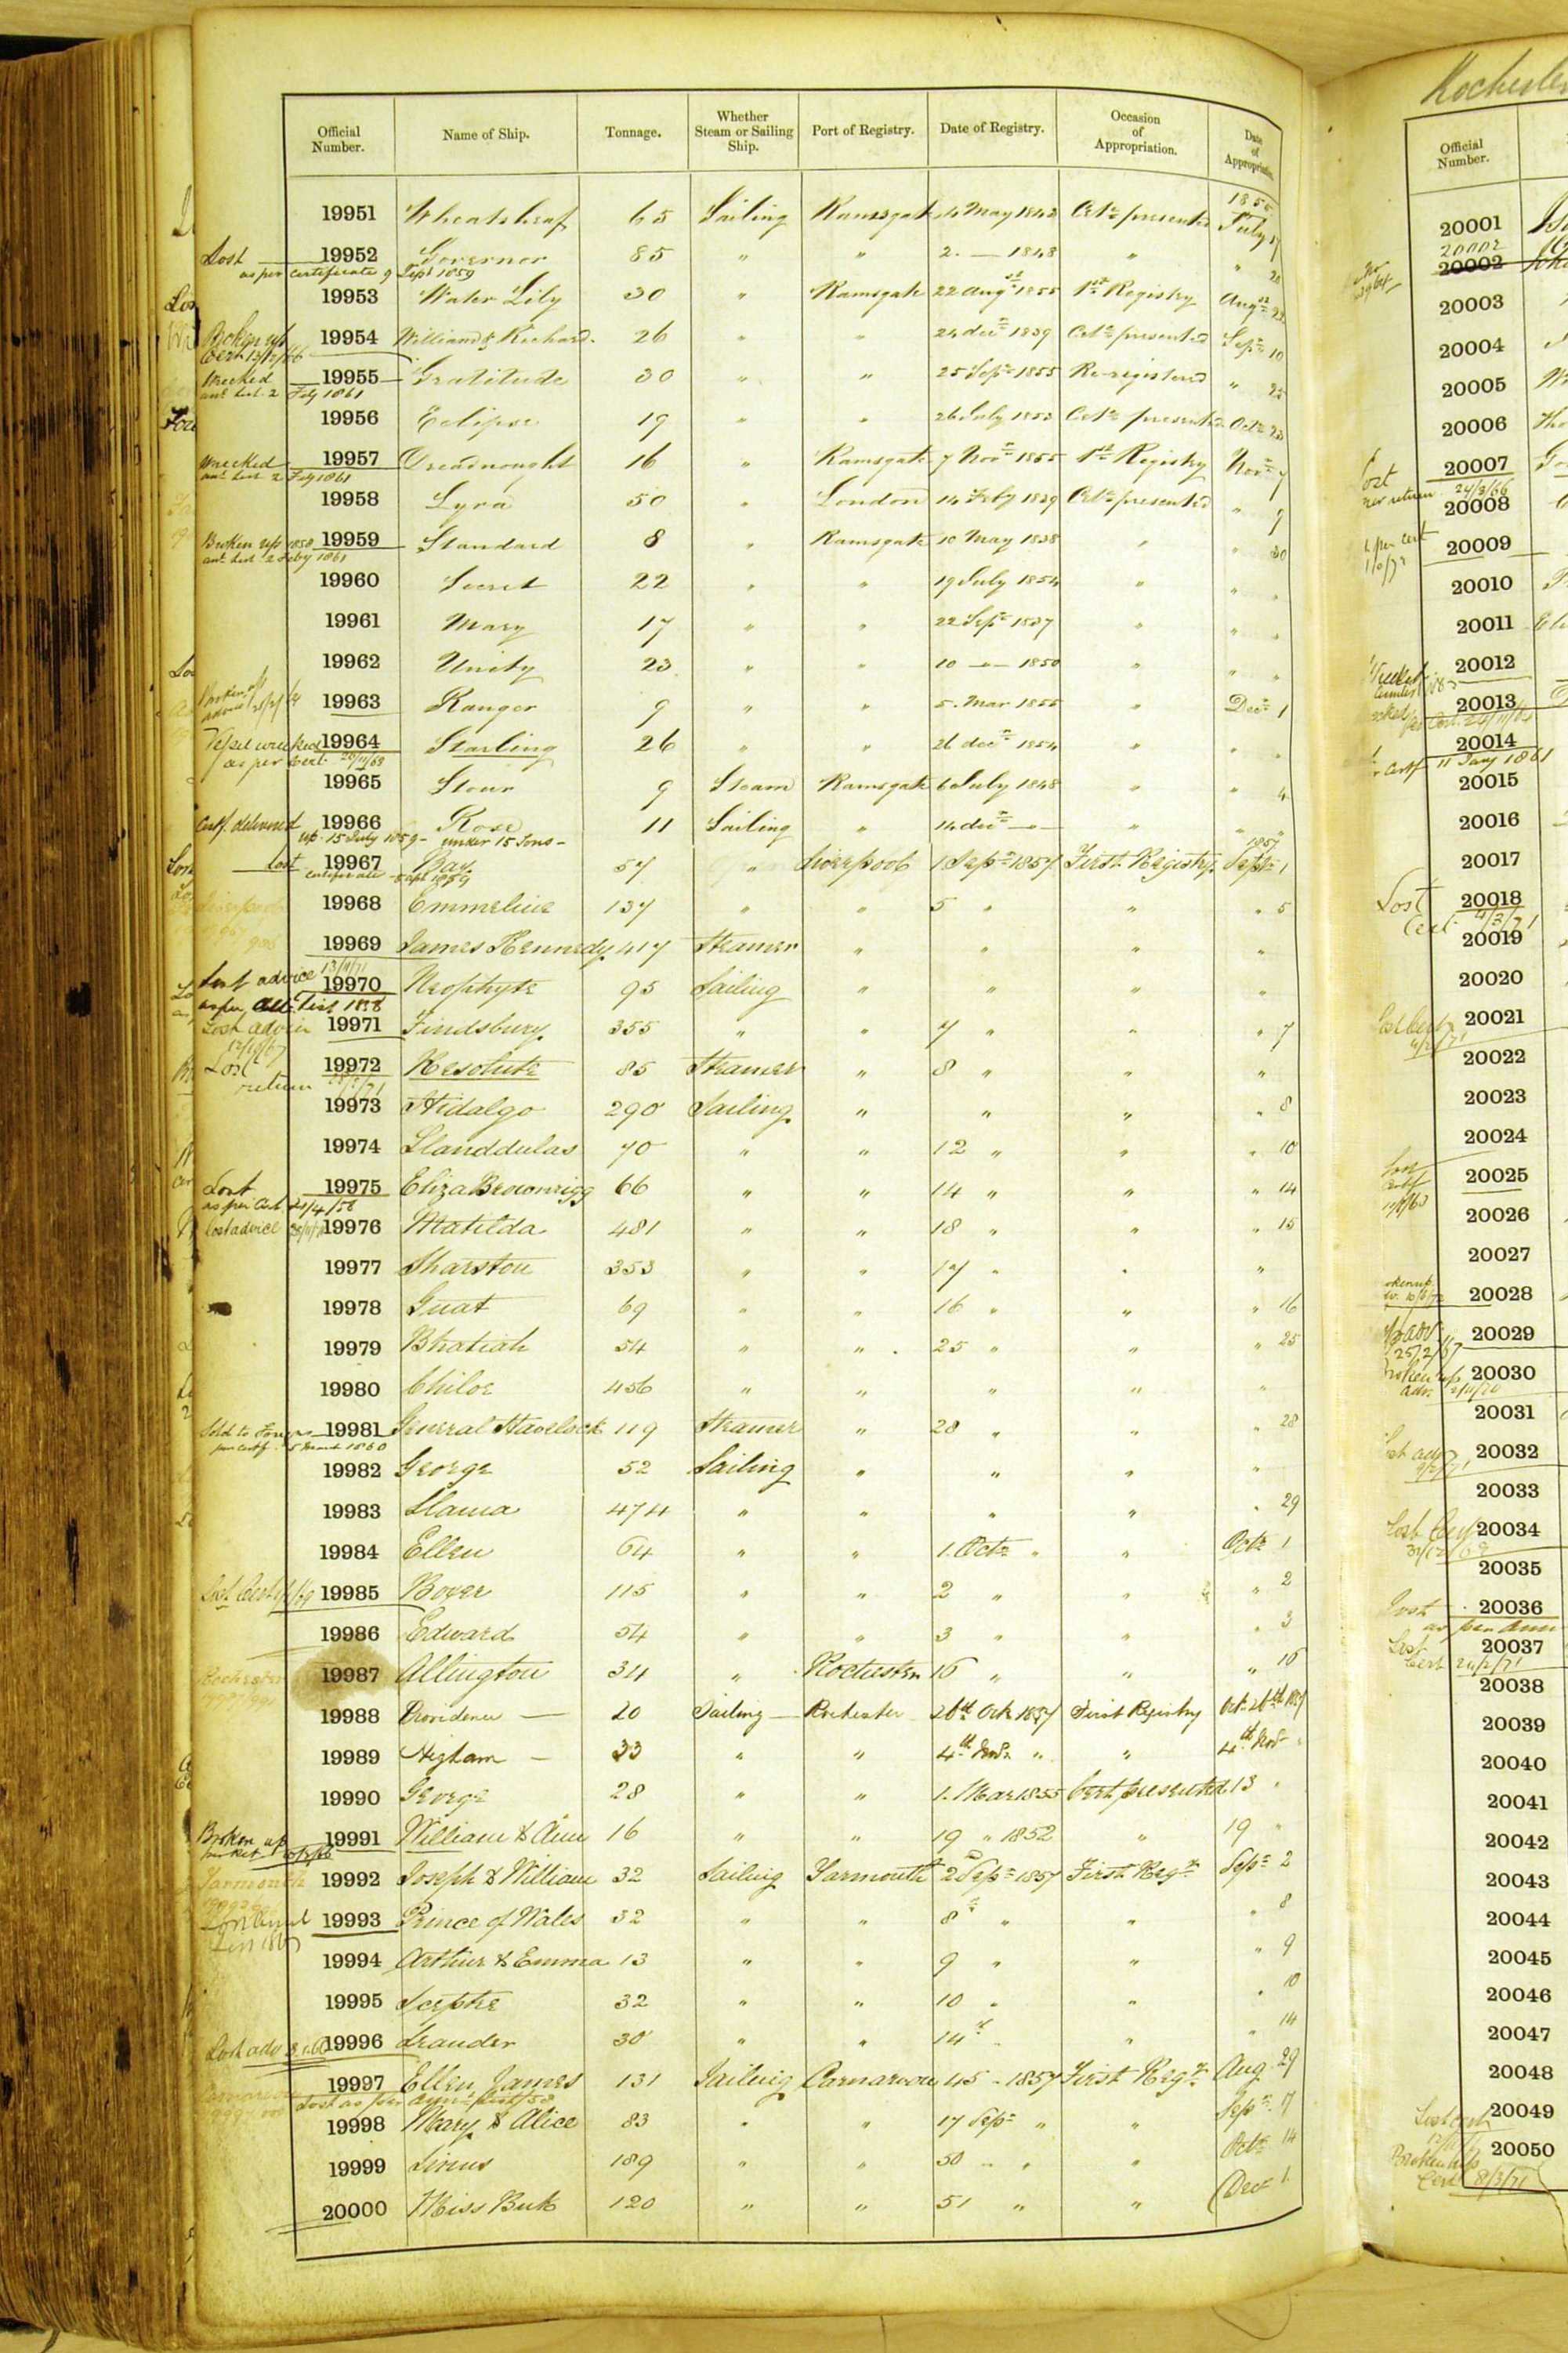 Official Number. Name of Ship. Tonnage. Whether Steam or Sailing Ship. Port of Registry. Date of Registry. Occasion of Appropriation. Date of Appropriation.
1855
19951 Wheatsheaf 65 Sailing Ramsgate 4 May 1843 Certe presented July 17
Lost 19952 Governor 85 " " 2. — 1848 " " 28
as per certificate 9 Sept 1859
19953 Water Lily 30 " Ramsgate 22 Augst 1855 1st Registry Augst 22
Broken up 19954 William & Richard 26 " " 24 decr 1839 Certe presented Sepr 10
Cert 13/12/66
Wrecked 19955 Gratitude 30 " " 25 Sepr 1855 Re-registered " 25
anl List 2 Feby 1861
19956 Eclipse 19 " " 26 July 1853 Certe presented Octr 23
Wrecked 19957 Dreadnought 16 " Ramsgate 7 Novr 1855 1st Registry Novr 7
anl List 2 Feby 1861
19958 Lyra 50 " London 14 Feby 1839 Certe presented " 9
Broken up 1858 19959 Standard 8 " Ramsgate 10 May 1838 " " 30
anl List 2 Feby 1861
19960 Secret 22 " " 19 July 1854 " " "
19961 Mary 17 " " 22 Sepr 1837 " " "
19962 Unity 23 " " 10 — 1850 " " "
Broken up 19963 Ranger 9 " " 5. Mar 1855 " Decr 1
advice
Vessel wrecked 19964 Starling 26 " " 26 decr 1854 " " "
as per Cert. 20/11/63
19965 Stour 9 Steam Ramsgate 6 July 1848 " " 4
Certf. delivered 19966 Rose 11 Sailing " 14 decr — " " "
up 15 July 1859 - under 15 Tons -
1857
Lost 19967 Bay 57 " Liverpool 1 Sepr 1857 First Registry Septr 1
Certificate Sept 1859
19968 Emmeline 137 " " 5 " " " 5
19969 James Kennedy 417 Steamer " " " "
Lost advice 13/11/71 19970 Neophyte 95 Sailing " " " "
as per List 1858
Lost advice 19971 Findsbury 355 " " 7 " " " 7
12/10/67
Lost 19972 Resolute 85 Steamer " 8 " " "
return
19973 Hidalgo 290 Sailing " " " " 8
19974 Llanddulas 70 " " 12 " " " 10
Lost 19975 Eliza Brownrigg 66 " " 14 " " " 14
as per Cert.
Lost advice 19976 Matilda 481 " " 18 " " " 15
19977 Sharston 353 " " 17 " " "
19978 Gnat 69 " " 16 " " " 16
19979 Bhatiah 54 " " 25 " " " 25
19980 Chiloe 456 " " " " "
Sold to 19981 General Havelock 119 Steamer " 28 " " " 28
per certf. 5 March 1860
19982 George 52 Sailing " " " "
19983 Llama 474 " " " " " 29
19984 Ellen 64 " " 1. Octr " " Octr 1
Lost Cert 19985 Boxer 115 " " 2 " " " 2
19986 Edward 54 " " 3 " " " 3
Rochester 19987 Allington 34 " Rochester 16 " " " 16
19988 Providence — 20 Sailing — Rochester 26th Octr 1857 First Registry Octr 26th 1857
19989 Higham — 33 " " 4th Novr " " 4th Novr "
19990 George 28 " " 1. Mar 1855 Cert presented 13 "
Broken up 19991 William & Ann 16 " " 19 " 1852 " 19 "
Yarmouth 19992 Joseph & William 32 Sailing Yarmouth 2 Sepr 1857 First Regy Sepr 2
19993 Prince of Wales 32 " " 8 " " " 8
List 1867
19994 Arthur & Emma 13 " " 9 " " " 9
19995 Sceptre 32 " " 10 " " " 10
Lost adv 19996 Leander 30 " " 14 " " " 14
19997 Ellen James 131 Sailing Carnarvon 45 - 1857 First Regy Aug 29
Lost as per annl List/58
19998 Mary & Alice 83 " " 17 Sepr " " Sepr 17
19999 Sirius 189 " " 50 " " " Octr 14
20000 Miss Beck 120 " " 51 " " Decr 1
Rochester
Official Number.
20001
20002
20002
20003
20004
20005
20006
Lost 20007
per return 24/3/66
20008
per cert 20009
20010
20011
20012
20013
20014
certf 11 Jany 1861
20015
20016
20017
Lost 20018
Cert 4/3/71
20019
20020
20021
20022
20023
20024
Lost 20025
certf
20026
20027
20028
20029
25/2/67
Broken up 20030
adv.
20031
Lost adv 20032
20033
Lost Cert 20034
20035
Lost 20036
as per Ann
Lost 20037
Cert 24/2/71
20038
20039
20040
20041
20042
20043
20044
20045
20046
20047
20048
Lost cert 20049
Broken up 20050
Cert 8/3/71